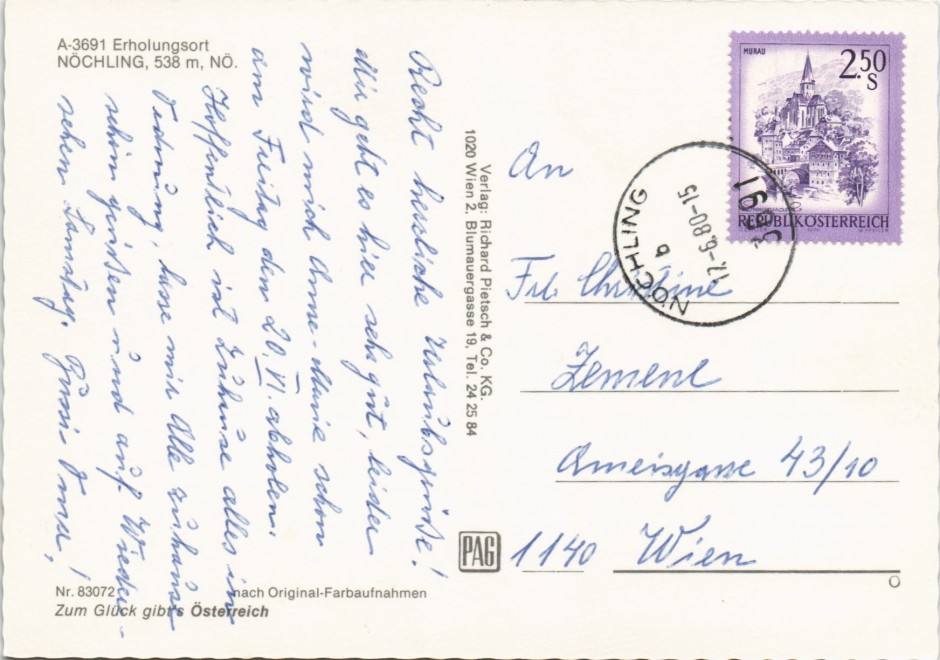 A-3691 Erholungsort
NÖCHLING, 538 m, NÖ.
Recht herzliche Urlaubsgrüße!
Mir geht es hier sehr gut, leider
wird mich Anne-Marie schon
am Freitag den 20. VI. abholen.
Hoffentlich ist zuhause alles in
Ordnung, lasse mir Alle zuhause
schön grüßen und auf Wieder-
sehen Samstag. Bussi Oma!
Verlag: Richard Pietsch & Co. KG.
1020 Wien 2, Blumauergasse 19, Tel. 24 25 84
MURAU
2.50
S
REPUBLIK ÖSTERREICH
3691 NÖCHLING
17.-6.80-15
b
An
Frl. Christine
Zemene
Ameisgasse 43/10
1140 Wien
PAG
Nr. 83072 nach Original-Farbaufnahmen
Zum Glück gibt's Österreich